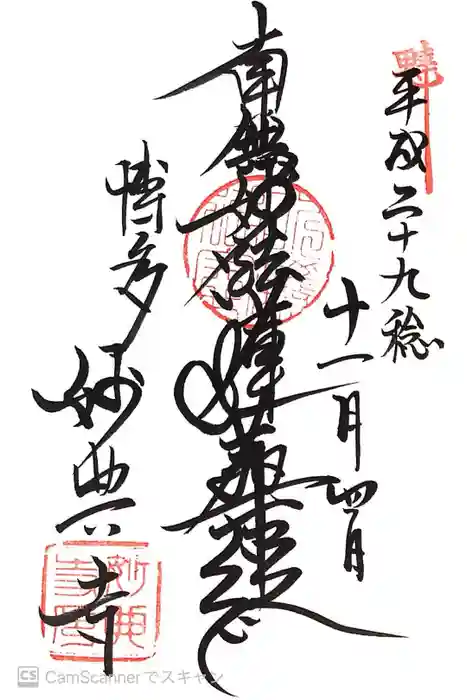 平成二十九稔
十一月四日
南無妙法蓮華経
博多
妙典寺
妙典
寺印
CS CamScannerでスキャン